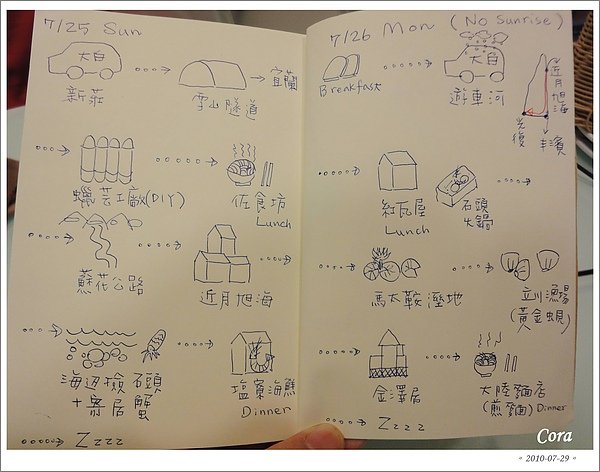 7/25 Sun
大白
新莊
雪山隧道
宜蘭
蠟芸工廠(DIY)
佐食坊
Lunch
蘇花公路
近月旭海
海边撿石頭
+寄居蟹
塩寮海鱻
Dinner
Zzzz
7/26 Mon (No Sunrise)
Breakfast
大白
遊車河
近月旭海
光復
丰濱
紅瓦屋
Lunch
石頭
火鍋
馬太鞍溼地
立川漁場
(黃金蜆)
金澤居
大陸麵店
(煎麵) Dinner
Zzzz
Cora
2010-07-29